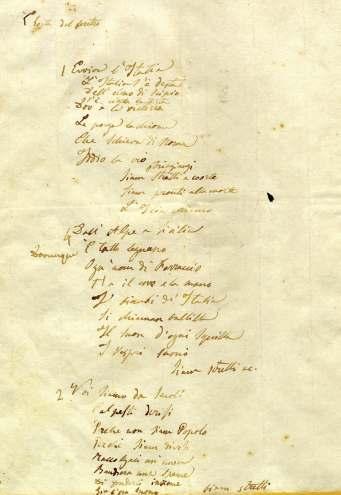 1 Evviva l'Italia
L'Italia s'è desta
Dell' elmo di Scipio
S'è cinta la testa
Dov' è la vittoria
Le porga la chioma
Che schiava di Roma
Iddio la creò
Siam pronti alla morte
Dall' Alpe a Sicilia
Dovunque è Legnano
Ogn' uom di Ferruccio
Ha il core e la mano
I bimbi d' Italia
Si chiaman Balilla
Il suon d'ogni squilla
I Vespri suonò
Siam stretti ec.
2 Noi siamo da secoli
Calpesti derisi
Perché non siam Popolo
Perché siam divisi
Raccolgaci un' unica
Bandiera una speme
Di fonderci insieme
Già l'ora suonò
Siam stretti